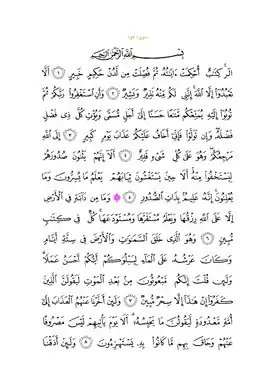 بِسْمِ ٱللَّهِ ٱلرَّحْمَٰنِ ٱلرَّحِيمِ
الٓر كِتَٰبٌ أُحْكِمَتْ ءَايَٰتُهُۥ ثُمَّ فُصِّلَتْ مِن لَّدُنْ حَكِيمٍ خَبِيرٍ ١ أَلَّا
تَعْبُدُوٓا۟ إِلَّا ٱللَّهَ إِنَّنِى لَكُم مِّنْهُ نَذِيرٌ وَبَشِيرٌ ٢ وَأَنِ ٱسْتَغْفِرُوا۟ رَبَّكُمْ ثُمَّ
تُوبُوٓا۟ إِلَيْهِ يُمَتِّعْكُم مَّتَٰعًا حَسَنًا إِلَىٰٓ أَجَلٍ مُّسَمًّى وَيُؤْتِ كُلَّ ذِى فَضْلٍ
فَضْلَهُۥ وَإِن تَوَلَّوْا۟ فَإِنِّىٓ أَخَافُ عَلَيْكُمْ عَذَابَ يَوْمٍ كَبِيرٍ ٣ إِلَى ٱللَّهِ
مَرْجِعُكُمْ وَهُوَ عَلَىٰ كُلِّ شَىْءٍ قَدِيرٌ ٤ أَلَآ إِنَّهُمْ يَثْنُونَ صُدُورَهُمْ
لِيَسْتَخْفُوا۟ مِنْهُ أَلَا حِينَ يَسْتَغْشُونَ ثِيَابَهُمْ يَعْلَمُ مَا يُسِرُّونَ وَمَا
يُعْلِنُونَ إِنَّهُۥ عَلِيمٌۢ بِذَاتِ ٱلصُّدُورِ ٥ وَمَا مِن دَآبَّةٍ فِى ٱلْأَرْضِ
إِلَّا عَلَى ٱللَّهِ رِزْقُهَا وَيَعْلَمُ مُسْتَقَرَّهَا وَمُسْتَوْدَعَهَا كُلٌّ فِى كِتَٰبٍ
مُّبِينٍ ٦ وَهُوَ ٱلَّذِى خَلَقَ ٱلسَّمَٰوَٰتِ وَٱلْأَرْضَ فِى سِتَّةِ أَيَّامٍ
وَكَانَ عَرْشُهُۥ عَلَى ٱلْمَآءِ لِيَبْلُوَكُمْ أَيُّكُمْ أَحْسَنُ عَمَلًا
وَلَئِن قُلْتَ إِنَّكُم مَّبْعُوثُونَ مِنۢ بَعْدِ ٱلْمَوْتِ لَيَقُولَنَّ ٱلَّذِينَ
كَفَرُوٓا۟ إِنْ هَٰذَآ إِلَّا سِحْرٌ مُّبِينٌ ٧ وَلَئِنْ أَخَّرْنَا عَنْهُمُ ٱلْعَذَابَ إِلَىٰٓ
أُمَّةٍ مَّعْدُودَةٍ لَّيَقُولُنَّ مَا يَحْبِسُهُۥٓ أَلَا يَوْمَ يَأْتِيهِمْ لَيْسَ مَصْرُوفًا
عَنْهُمْ وَحَاقَ بِهِم مَّا كَانُوا۟ بِهِۦ يَسْتَهْزِءُونَ ٨ وَلَئِنْ أَذَقْنَا